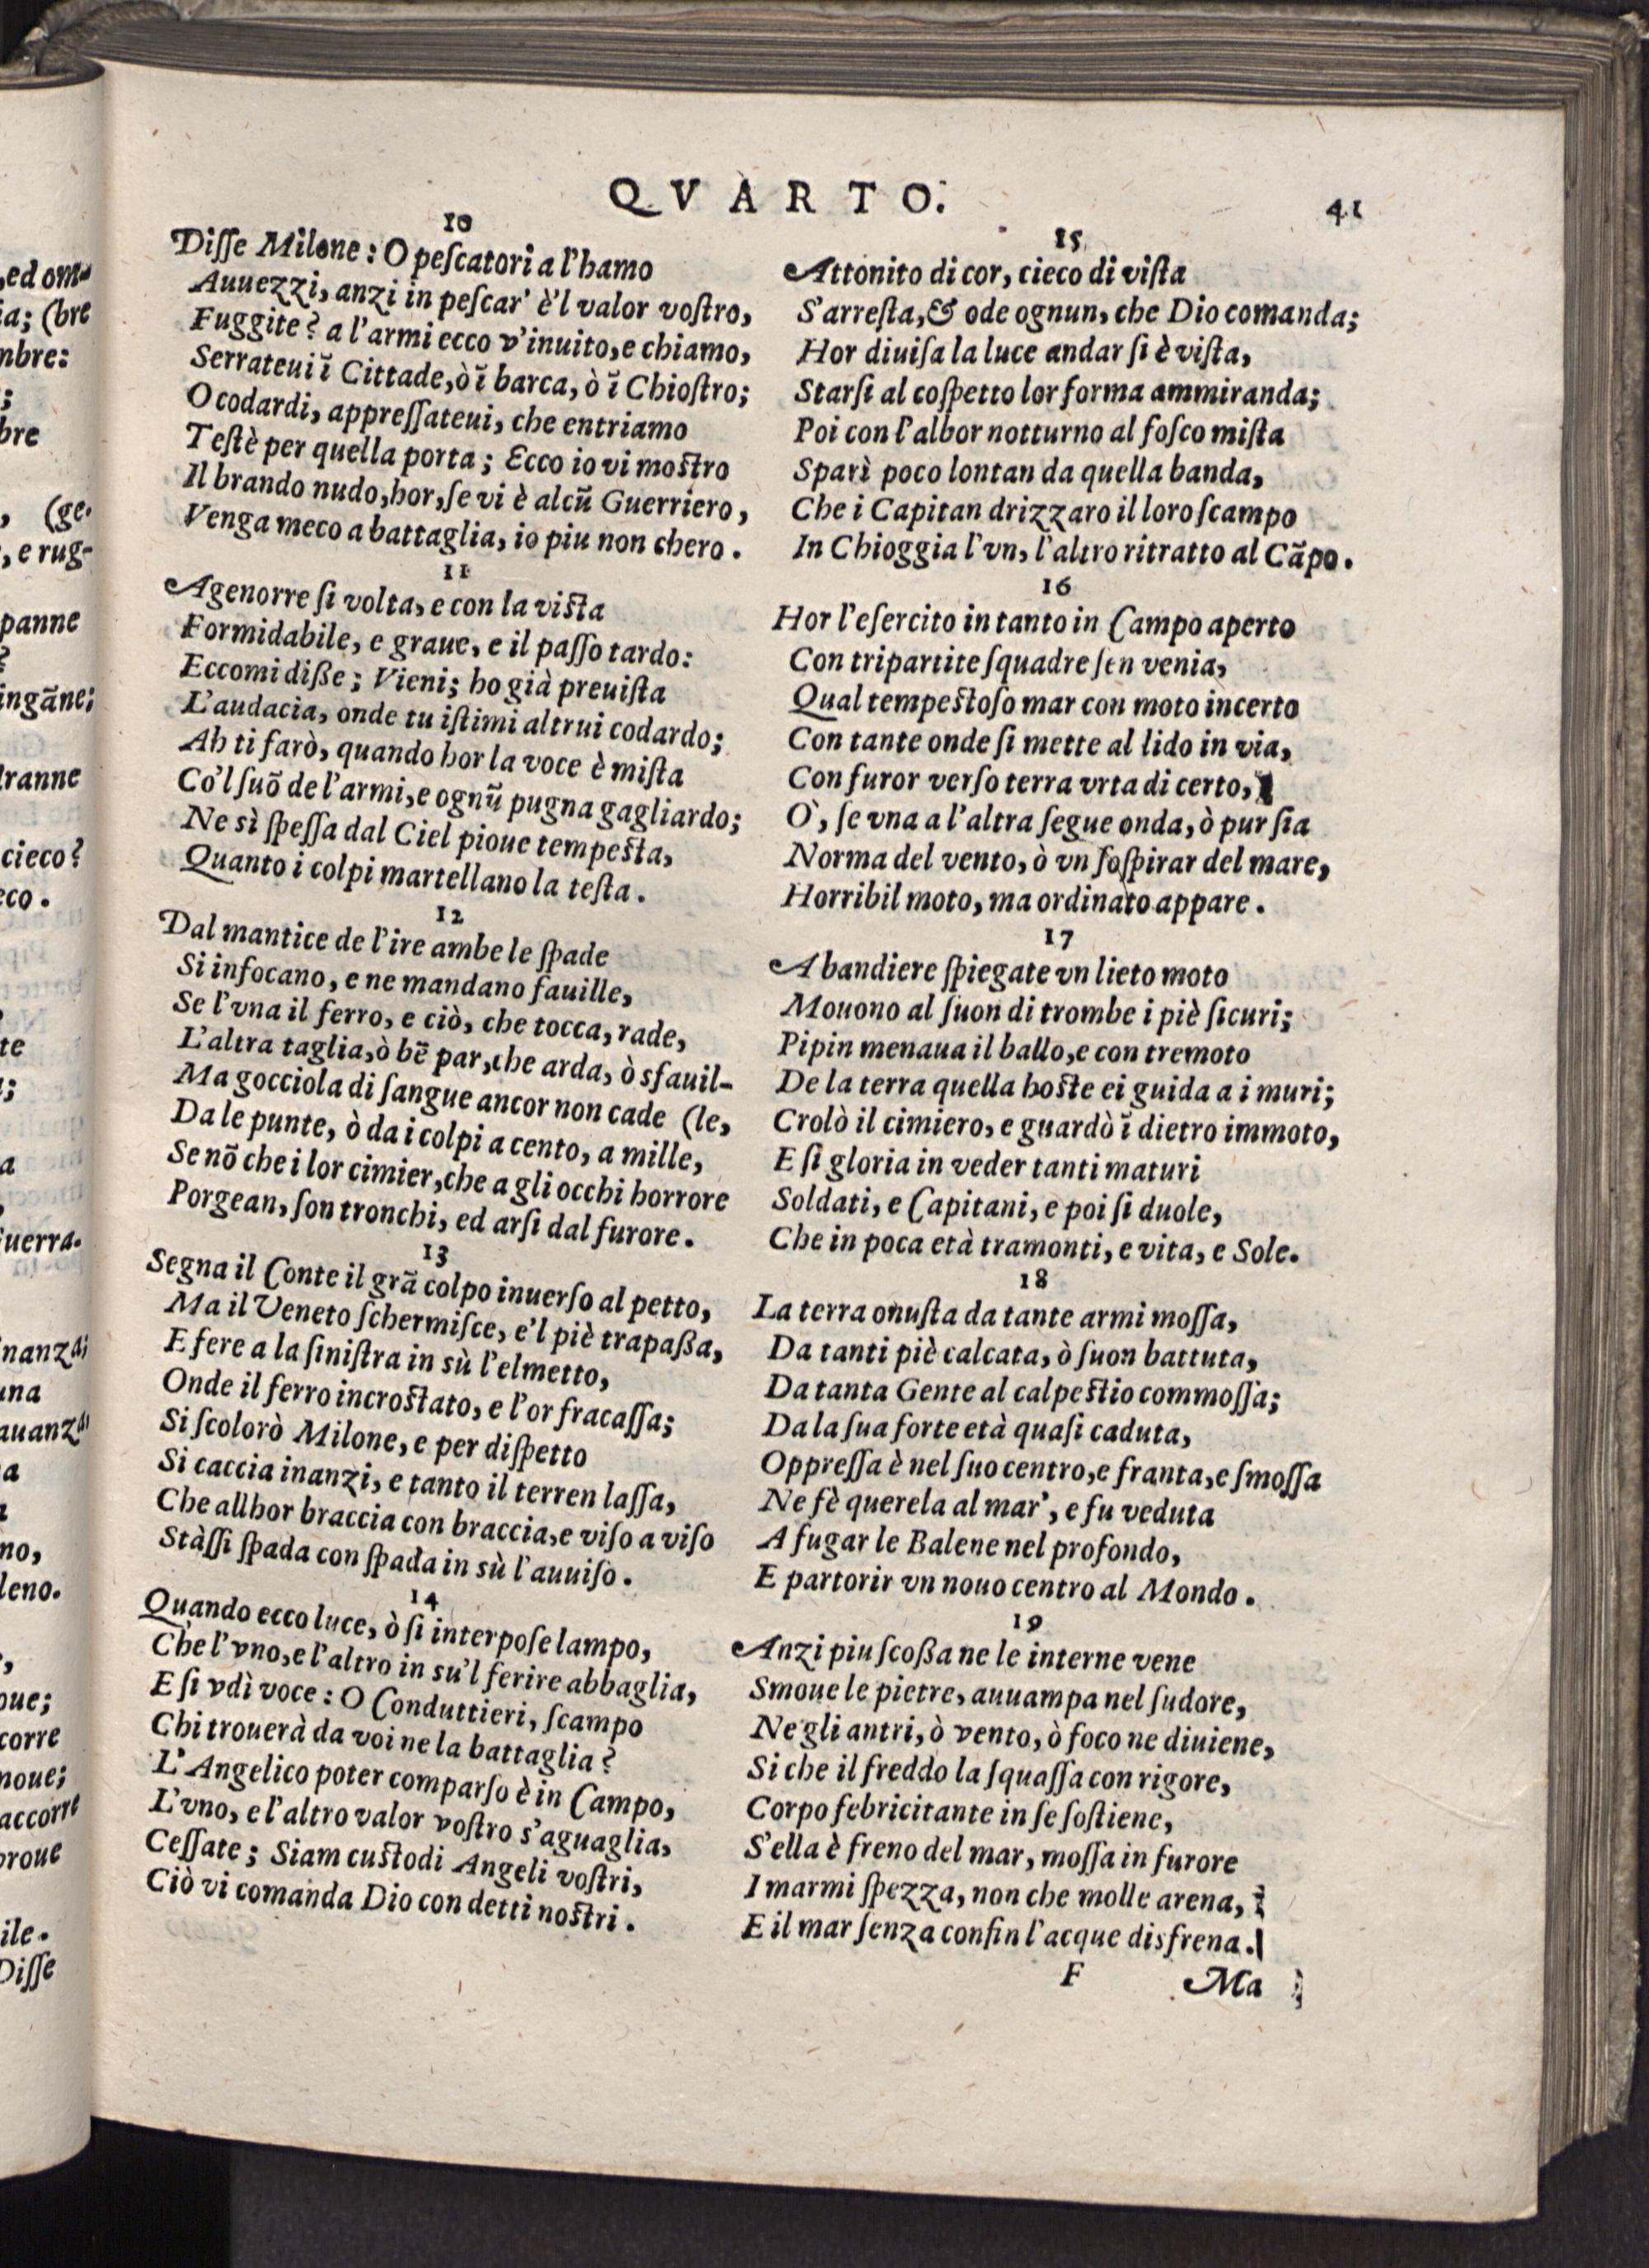 QVARTO.
41
10
Diſſe Milone: O peſcatori a l'hamo
Auuezzi, anzi in peſcar' è'l valor voſtro,
Fuggite? a l'armi ecco v'inuito, e chiamo,
Serrateui ĩ Cittade, ò ĩ barca, ò ĩ Chioſtro;
O codardi, appreſſateui, che entriamo
Teſtè per quella porta; Ecco io vi moſtro
Il brando nudo, hor, ſe vi è alcũ Guerriero,
Venga meco a battaglia, io piu non chero.
11
Agenorre ſi volta, e con la viſta
Formidabile, e graue, e il paſſo tardo:
Eccomi diße; Vieni; ho già preuiſta
L'audacia, onde tu iſtimi altrui codardo;
Ah ti farò, quando hor la voce è miſta
Co'l ſuõ de l'armi, e ognũ pugna gagliardo;
Ne sì ſpeſſa dal Ciel pioue tempeſta,
Quanto i colpi martellano la teſta.
12
Dal mantice de l'ire ambe le ſpade
Si infocano, e ne mandano fauille,
Se l'vna il ferro, e ciò, che tocca, rade,
L'altra taglia, ò bẽ par, che arda, ò sfauil-
Ma gocciola di ſangue ancor non cade (le,
Da le punte, ò da i colpi a cento, a mille,
Se nõ che i lor cimier, che a gli occhi horrore
Porgean, ſon tronchi, ed arſi dal furore.
13
Segna il Conte il grã colpo inuerſo al petto,
Ma il Veneto ſchermiſce, e'l piè trapaßa,
E fere a la ſiniſtra in sù l'elmetto,
Onde il ferro incroſtato, e l'or fracaſſa;
Si ſcolorò Milone, e per diſpetto
Si caccia inanzi, e tanto il terren laſſa,
Che allhor braccia con braccia, e viſo a viſo
Stàſſi ſpada con ſpada in sù l'auuiſo.
14
Quando ecco luce, ò ſi interpoſe lampo,
Che l'vno, e l'altro in su'l ferire abbaglia,
E ſi vdì voce: O Conduttieri, ſcampo
Chi trouerà da voi ne la battaglia?
L'Angelico poter comparſo è in Campo,
L'vno, e l'altro valor voſtro s'aguaglia,
Ceſſate; Siam cuſtodi Angeli voſtri,
Ciò vi comanda Dio con detti noſtri.
15
Attonito di cor, cieco di viſta
S'arreſta, & ode ognun, che Dio comanda;
Hor diuiſa la luce andar ſi è viſta,
Starſi al coſpetto lor forma ammiranda;
Poi con l'albor notturno al foſco miſta
Sparì poco lontan da quella banda,
Che i Capitan drizzaro il loro ſcampo
In Chioggia l'vn, l'altro ritratto al Cãpo.
16
Hor l'eſercito in tanto in Campo aperto
Con tripartite ſquadre ſen venia,
Qual tempeſtoſo mar con moto incerto
Con tante onde ſi mette al lido in via,
Con furor verſo terra vrta di certo,
Ò, ſe vna a l'altra ſegue onda, ò pur ſia
Norma del vento, ò vn ſoſpirar del mare,
Horribil moto, ma ordinato appare.
17
A bandiere ſpiegate vn lieto moto
Mouono al ſuon di trombe i piè ſicuri;
Pipin menaua il ballo, e con tremoto
De la terra quella hoſte ei guida a i muri;
Crolò il cimiero, e guardò ĩ dietro immoto,
E ſi gloria in veder tanti maturi
Soldati, e Capitani, e poi ſi duole,
Che in poca età tramonti, e vita, e Sole.
18
La terra onuſta da tante armi moſſa,
Da tanti piè calcata, ò ſuon battuta,
Da tanta Gente al calpeſtio commoſſa;
Da la ſua forte età quaſi caduta,
Oppreſſa è nel ſuo centro, e franta, e ſmoſſa
Ne fè querela al mar', e fu veduta
A fugar le Balene nel profondo,
E partorir vn nouo centro al Mondo.
19
Anzi piu ſcoßa ne le interne vene
Smoue le pietre, auuampa nel ſudore,
Ne gli antri, ò vento, ò foco ne diuiene,
Si che il freddo la ſquaſſa con rigore,
Corpo febricitante in ſe ſoſtiene,
S'ella è freno del mar, moſſa in furore
I marmi ſpezza, non che molle arena,
E il mar ſenza confin l'acque disfrena.
F
Ma